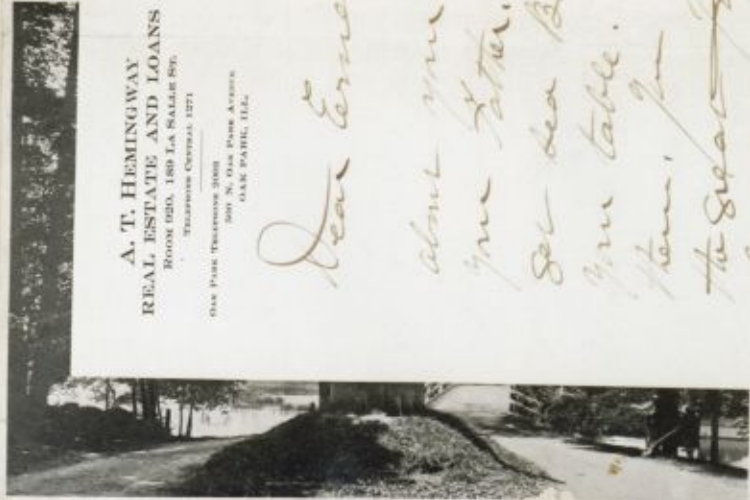 A. T. HEMINGWAY
REAL ESTATE AND LOANS
ROOM 920, 189 LA SALLE ST.
TELEPHONE CENTRAL 1271
OAK PARK TELEPHONE 2002
500 N. OAK PARK AVENUE
OAK PARK, ILL.
Dear Erne
about you
your Father.
see dea B
your table.
them. In
the great